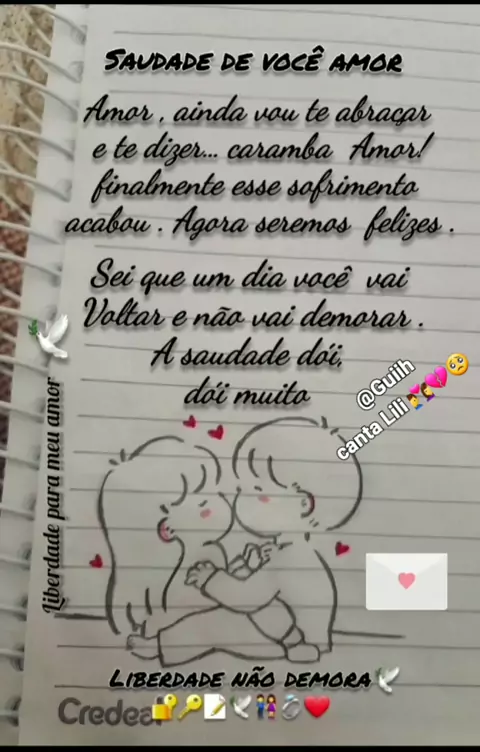 SAUDADE DE VOCÊ AMOR
Amor , ainda vou te abraçar
e te dizer... caramba Amor!
finalmente esse sofrimento
acabou . Agora seremos felizes .
Sei que um dia você vai
Voltar e não vai demorar .
A saudade dói,
dói muito
@Guiih
canta Lili
Liberdade para meu amor
LIBERDADE NÃO DEMORA